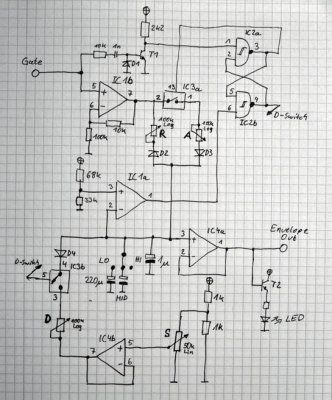 2k2
IC2a
1
2
3
10k
1n
T1
Gate
D1
IC1b
5
6
7
13
IC3a
2
1
5
6
4
IC2b
D-Switch
100k
Log
R
10k
Log
A
D2
D3
100k
10k
68k
33k
IC1a
3
2
1
D-Switch
D4
4
5
3
IC3b
LO
HI
MID
220µ
1µ
IC4a
3
2
1
Envelope
Out
T2
LED
1k
1k
D
Log
IC4b
7
5
6
S
50k
Lin